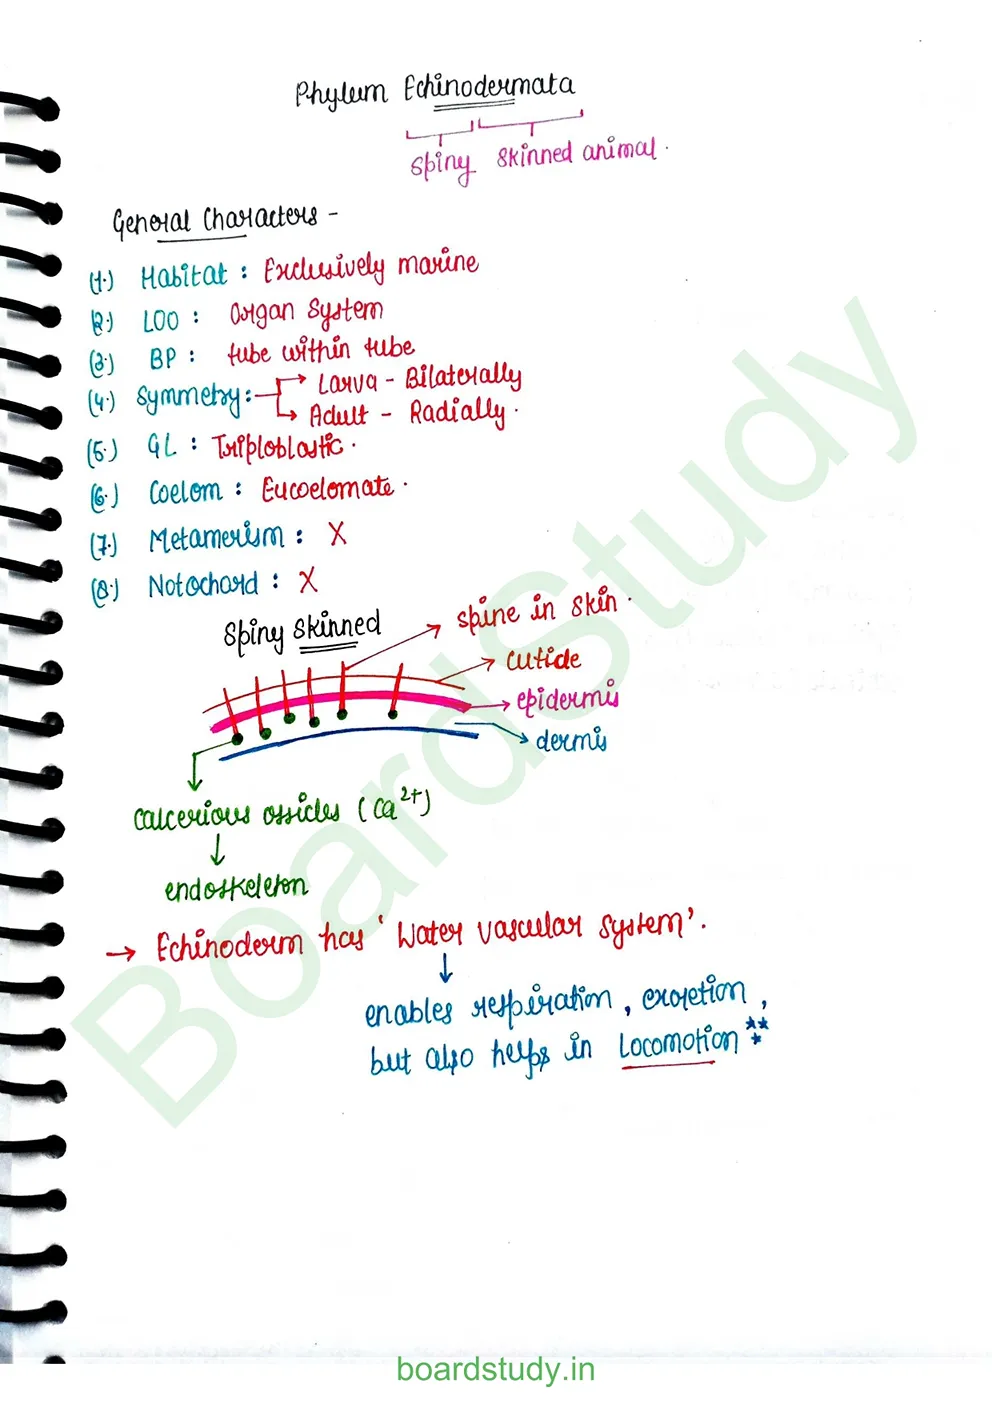 Phylum Echinodermata
Spiny skinned animal.
General Characters -
(1.) Habitat : Exclusively marine
(2.) LOO : Organ System
(3.) BP : tube within tube
(4.) Symmetry : → Larva - Bilaterally
→ Adult - Radially.
(5.) GL : Triploblastic.
(6.) Coelom : Eucoelomate.
(7.) Metamerism : X
(8.) Notochord : X
Spiny Skinned
→ spine in skin.
→ cuticle
→ epidermis
→ dermis
calcerious ossicles (Ca²⁺)
↓
endoskeleton
→ Echinoderm has 'Water vascular system'.
↓
enables respiration, excretion,
but also helps in Locomotion ***
BoardStudy
boardstudy.in